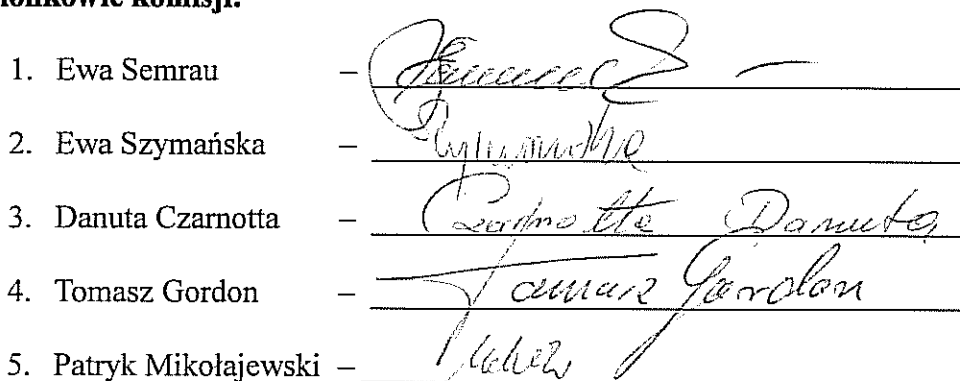 komisji:
1. Ewa Semrau –
2. Ewa Szymańska –
3. Danuta Czarnotta – Czarnotta Danuta
4. Tomasz Gordon – Tomasz Gordon
5. Patryk Mikołajewski –